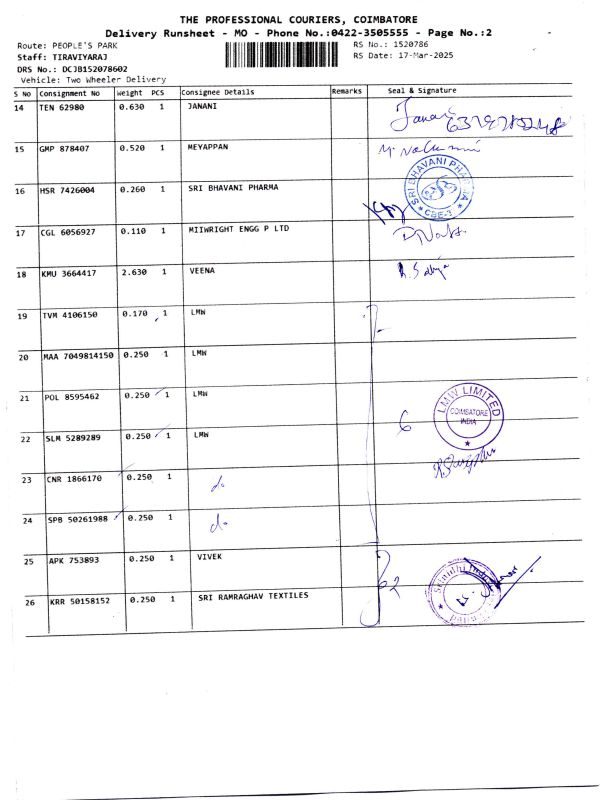 THE PROFESSIONAL COURIERS, COIMBATORE
Delivery Runsheet - MO - Phone No.:0422-3505555 - Page No.:2
Route: PEOPLE'S PARK RS No.: 1520786
Staff: TIRAVIYARAJ RS Date: 17-Mar-2025
DRS No.: DCJB152078602
Vehicle: Two Wheeler Delivery
S No Consignment No Weight PCS Consignee Details Remarks Seal & Signature
14 TEN 62980 0.630 1 JANANI Janani
15 GMP 878407 0.520 1 MEYAPPAN
16 HSR 7426004 0.260 1 SRI BHAVANI PHARMA SRI BHAVANI PHARMA CBE-1
17 CGL 6056927 0.110 1 MIIWRIGHT ENGG P LTD
18 KMU 3664417 2.630 1 VEENA
19 TVM 4106150 0.170 1 LMW
20 MAA 7049814150 0.250 1 LMW
21 POL 8595462 0.250 1 LMW LMW LIMITED COIMBATORE INDIA
22 SLM 5289289 0.250 1 LMW 6
23 CNR 1866170 0.250 1 do
24 SPB 50261988 0.250 1 do
25 APK 753893 0.250 1 VIVEK 2
26 KRR 50158152 0.250 1 SRI RAMRAGHAV TEXTILES